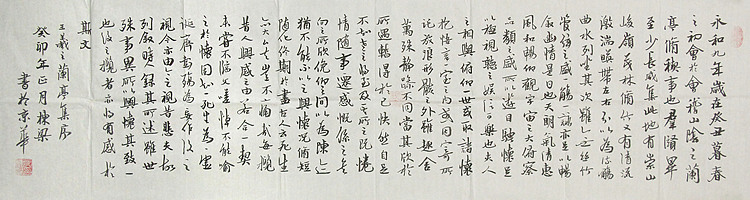 永和九年歲在癸丑暮春
之初會於會稽山陰之蘭
亭脩稧事也群賢畢
至少長咸集此地有崇山
峻領茂林脩竹又有清流
激湍暎帶左右引以為流觴
曲水列坐其次雖無絲竹
管弦之盛一觴一詠亦足以暢
敘幽情是日也天朗氣清惠
風和暢仰觀宇宙之大俯察
品類之盛所以遊目騁懷足
以極視聽之娛信可樂也夫人
之相與俯仰一世或取諸懷
抱悟言一室之內或因寄所
託放浪形骸之外雖趣舍
萬殊靜躁不同當其欣於
所遇暫得於己怏然自足
不知老之將至及其所之既惓
情隨事遷感慨係之矣
向之所欣俛仰之間以為陳迹
猶不能不以之興懷況脩短
隨化終期於盡古人云死生
亦大矣豈不痛哉每攬
昔人興感之由若合一契
未嘗不臨文嗟悼不能喻
之於懷固知一死生為虛
誕齊彭殤為妄作後之
視今亦由今之視昔悲夫故
列敘時人錄其所述雖世
殊事異所以興懷其致一
也後之攬者亦將有感於
斯文
王羲之蘭亭集序
癸卯年正月棟梁
書於京華